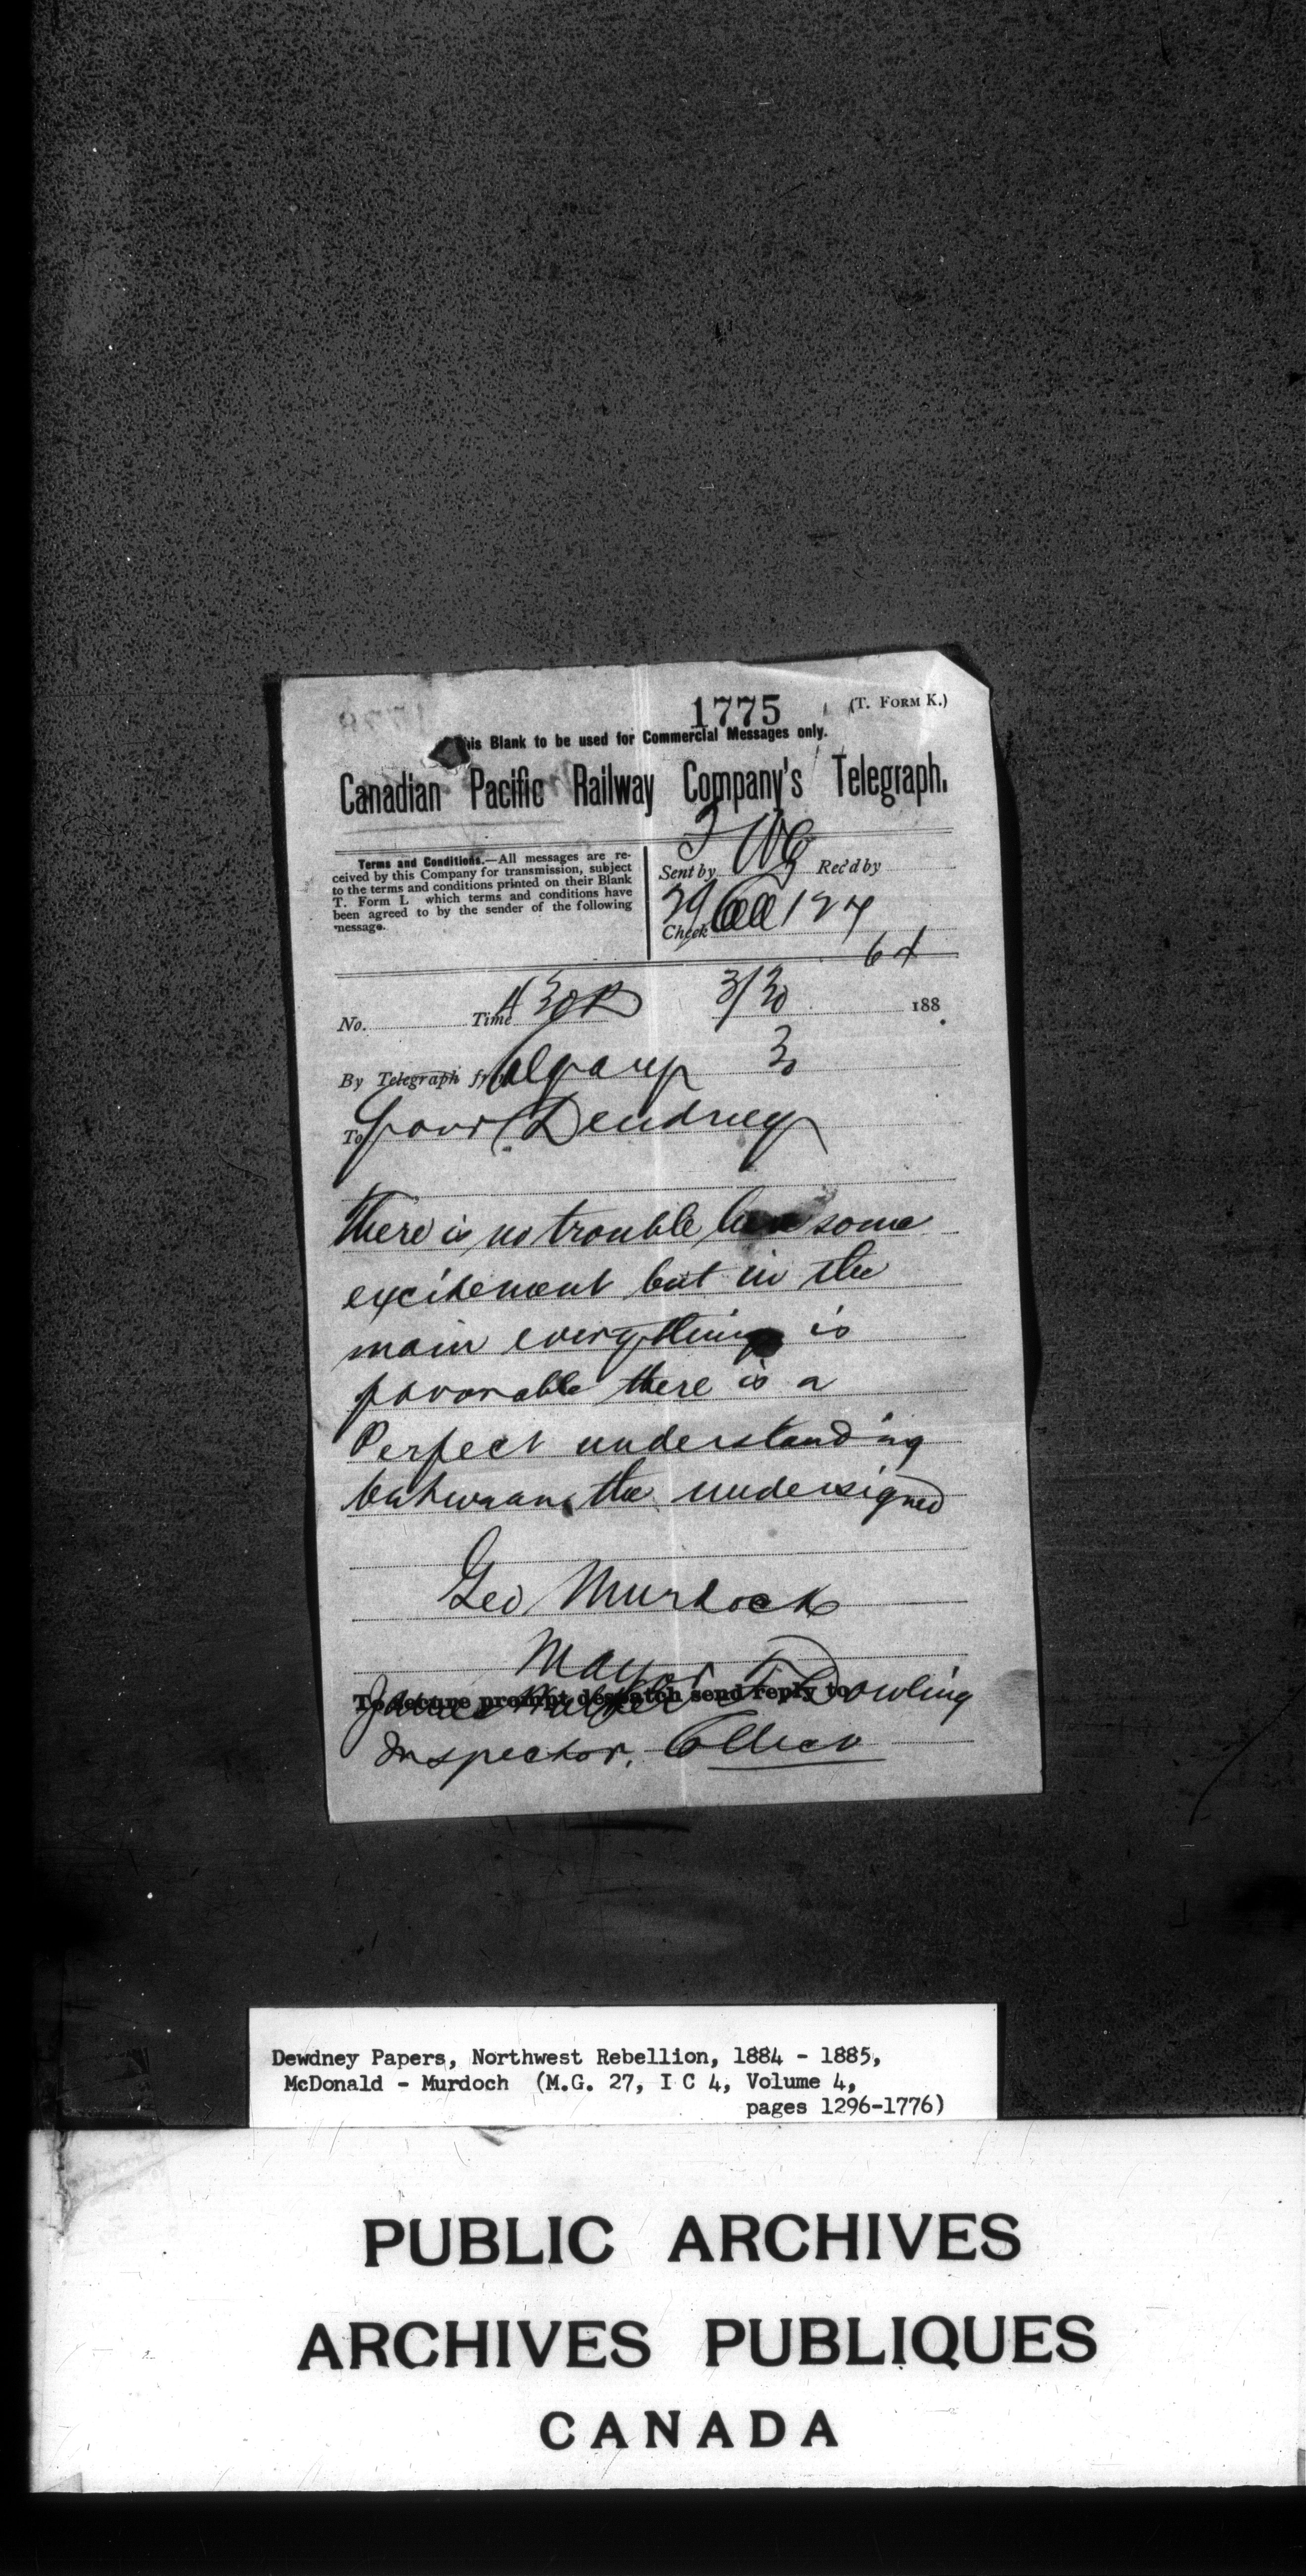 1775 (T. FORM K.)
his Blank to be used for Commercial Messages only.
Canadian Pacific Railway Company's Telegraph.
Terms and Conditions.—All messages are re-
ceived by this Company for transmission, subject
to the terms and conditions printed on their Blank
T. Form L which terms and conditions have
been agreed to by the sender of the following
message.
Sent by Rec'd by
29 Coll 127
Check
No. Time 430P 3/30 188
By Telegraph from Calgary 30
To Govr Dewdney
There is no trouble here some
excitement but in the
main everything is
favorable there is a
Perfect understanding
between the undersigned
Geo Murdock
Mayor
James Walker T Dowling
To secure prompt despatch send reply to
Inspector.
Dewdney Papers, Northwest Rebellion, 1884 - 1885,
McDonald - Murdoch (M.G. 27, I C 4, Volume 4,
pages 1296-1776)
PUBLIC ARCHIVES
ARCHIVES PUBLIQUES
CANADA